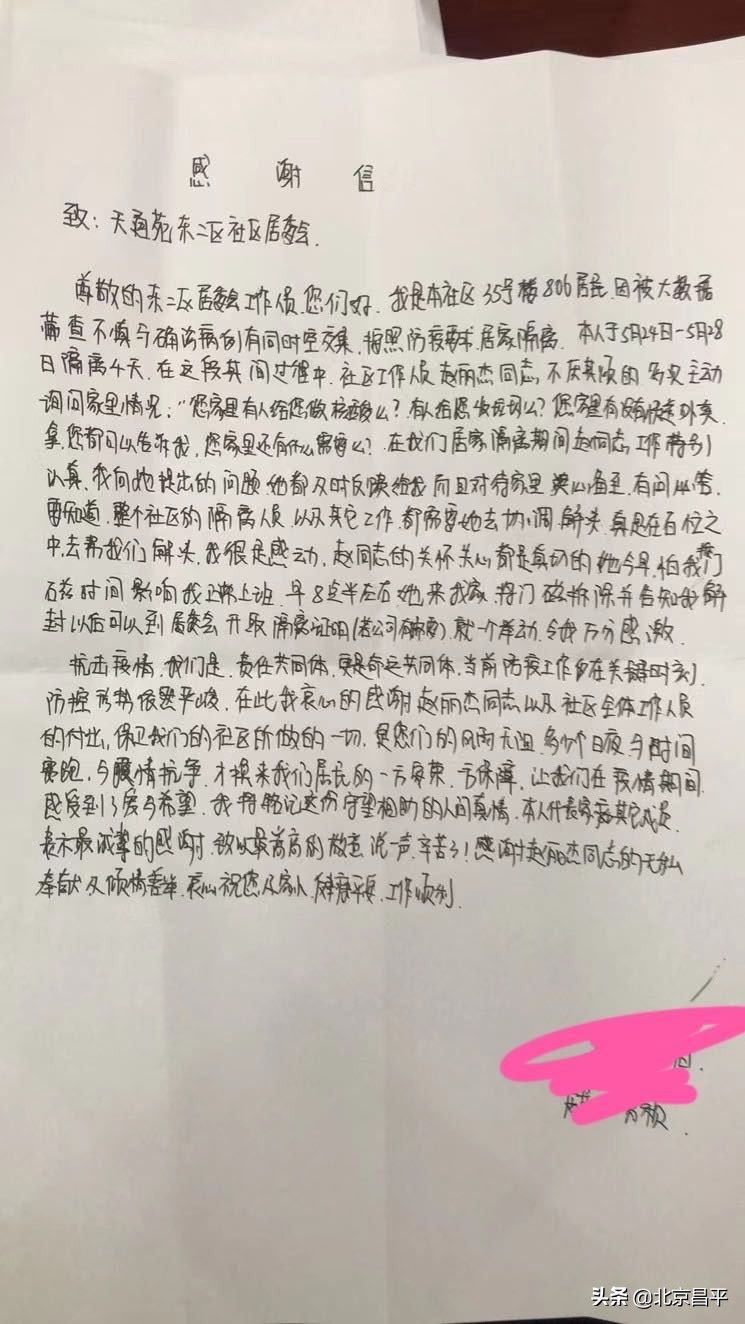 感 谢 信
致：天通苑东二区社区居委会.
尊敬的东二区居委会工作人员.您们好.我是本社区35号楼806居民.因被大数据
筛查不慎与确诊病例有同时空交集.按照防疫要求.居家隔离.本人于5月24日-5月28
日隔离4天.在这段其间过程中.社区工作人员赵丽杰同志.不厌其烦的多次主动
询问家里情况："您家里有人给您做核酸么？有人给您么？您家里有没有快递外卖
拿.您都可以告诉我，您家里还有什么需要么？在我们居家隔离期间赵同志.工作特别
认真.我向她提出的问题她都及时反馈给我而且对待家里关心备至.有问必答.
要知道.整个社区的隔离人员.以及其它工作.都需要她去协调.解决.真是在百忙之
中.去帮我们解决.我很是感动.赵同志的关怀关心都是真切的她今早.怕我门
磁时间影响我正常上班.早8点半左右她来我家.将门磁拆除并告知我解
封以后可以到居委会开取隔离证明(若公司有需要).就一个举动.令我万分感激.
抗击疫情.我们是.责任共同体.更是命运共同体.当前防疫工作在关键时刻.
防控形势依然严峻.在此我衷心的感谢赵丽杰同志以及社区全体工作人员
的付出.保卫我们的社区所做的一切.是您们的风雨无阻.多少个日夜.与时间
赛跑.与疫情抗争.才换来我们居民的一方.一方保障.让我们在疫情期间
感受到了爱与希望.我将铭记这份守望相助的人间真情.本人代表家庭其它成员
表示最诚挚的感谢.致以最崇高的敬意.说一声.辛苦了！感谢赵丽杰同志的无私
奉献及倾情.衷心祝您及家人.健康平安.工作顺利.
头条 @北京昌平